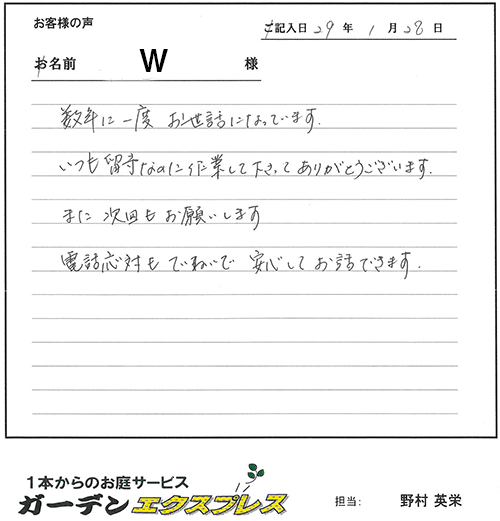 お客様の声
ご記入日 29 年 1 月 28 日
お名前 W 様
数年に一度 お世話になっています.
いつも留守なのに作業して下さってありがとうございます.
また 次回も お願いします
電話応対も ていねいで 安心して お話できます.
1本からのお庭サービス
ガーデン エクスプレス
担当: 野村 英栄